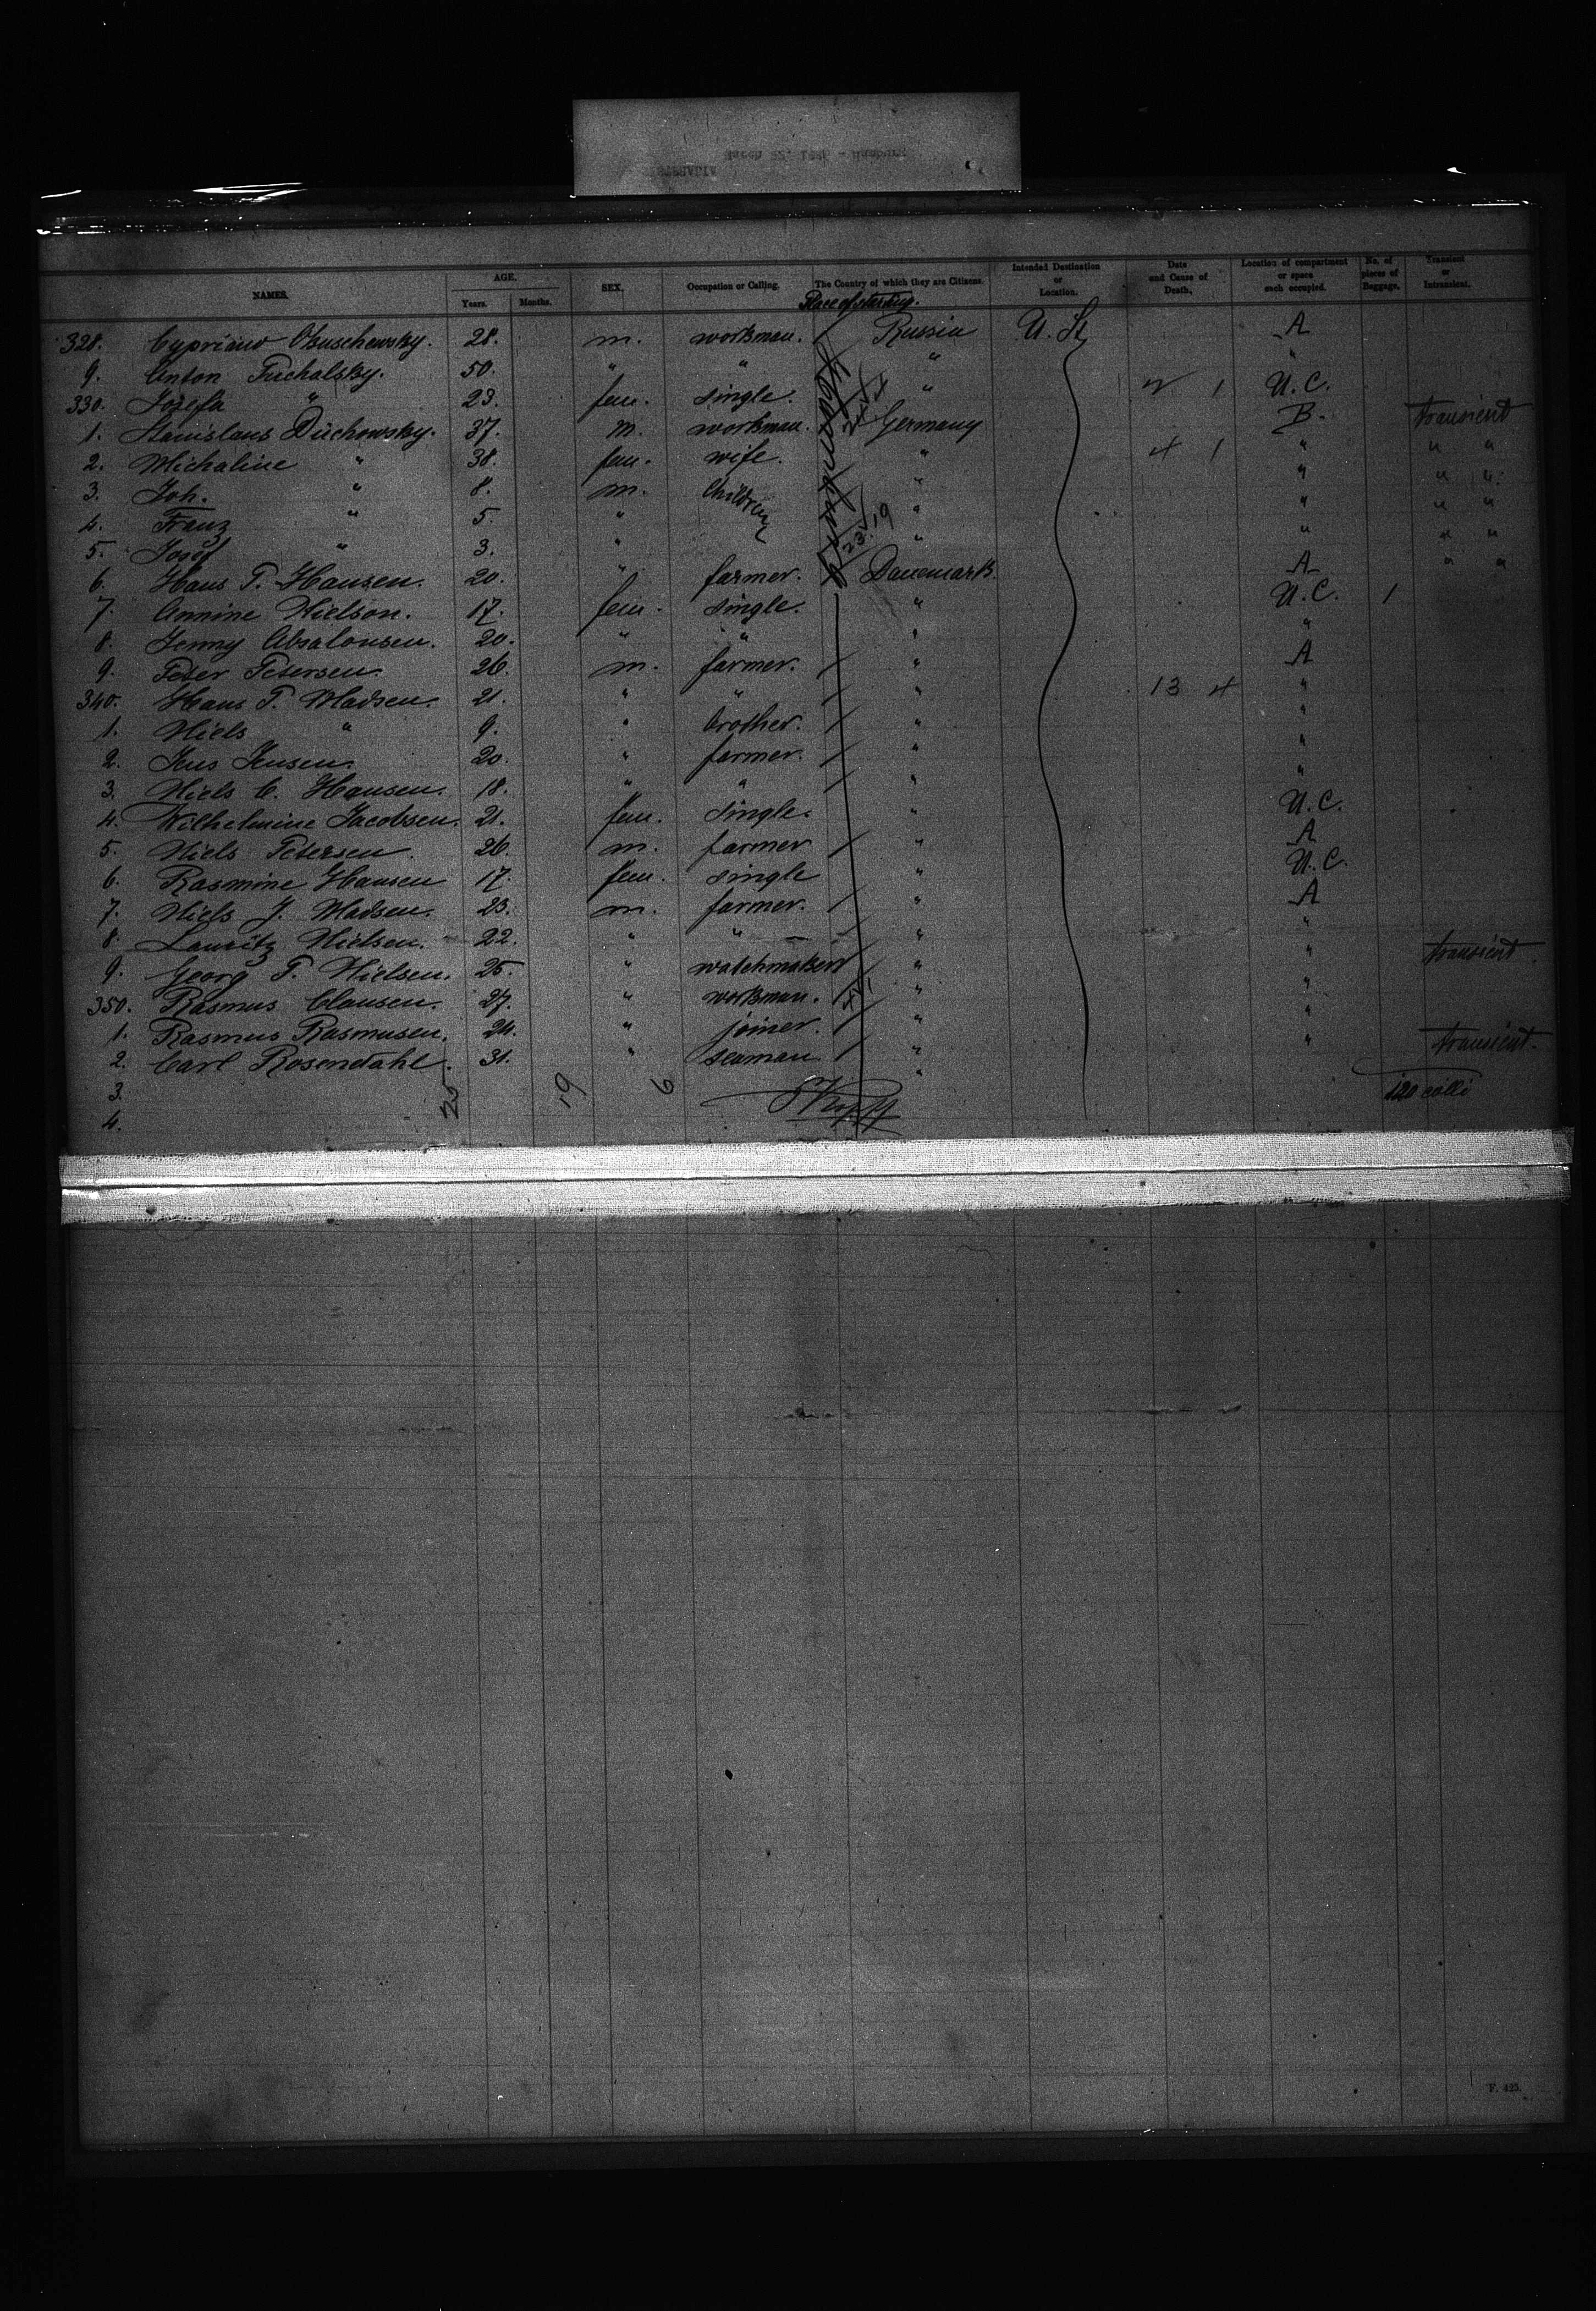 March 22, 188 - Hamburg
WESTPHALIA
NAMES. AGE. Years. Months. SEX. Occupation or Calling. The Country of which they are Citizens. Intended Destination or Location. Date and Cause of Death. Location of compartment or space each occupied. No. of pieces of Baggage. Transient or Intransient.
Place of starting.
328. Cypriano 28. m. workman. / Russia U. St A
9. Anton Puchalsky. 50. " " " "
330. Josefa " 23. fem. single. " 2 1 U.C.
1. Stanislaus Duchowsky. 37. m. workman. Germany B. transient
2. Michaline " 38. fem. wife. " 4 1 " " "
3. Joh. " 8. m. Children " " " "
4. Franz " 5. " " " " "
5. Josef " 3. " " " " "
6. Hans P. Hansen. 20. " farmer. / Danemark. A " "
7. Annine Nielson. 17. fem. single. " U.C. 1
8. Jenny Absalonsen. 20. " " " "
9. Peter Petersen. 26. m. farmer. / " A
340. Hans P. Madsen. 21. " " / " 13 4 "
1. Niels " 9. " brother. / " "
2. Jens Jensen. 20. " farmer. / " "
3. Niels C. Hansen. 18. " " / " "
4. Wilhelmine Jacobsen. 21. fem. single. " U.C.
5. Niels Petersen. 26. m. farmer / " A
6. Rasmine Hansen 17. fem. single " U.C.
7. Niels J. Madsen. 23. m. farmer. / " A
8. Lauritz Nielsen. 22. " " / " "
9. Georg P. Nielsen. 25. " watchmaker / " " transient.
350. Rasmus Clausen. 27. " workman. / " "
1. Rasmus Rasmusen. 24. " joiner. / " "
2. Carl Rosendahl. 31. " seaman / " " transient.
3. 25 19 6 120 colli
4.
F. 425.